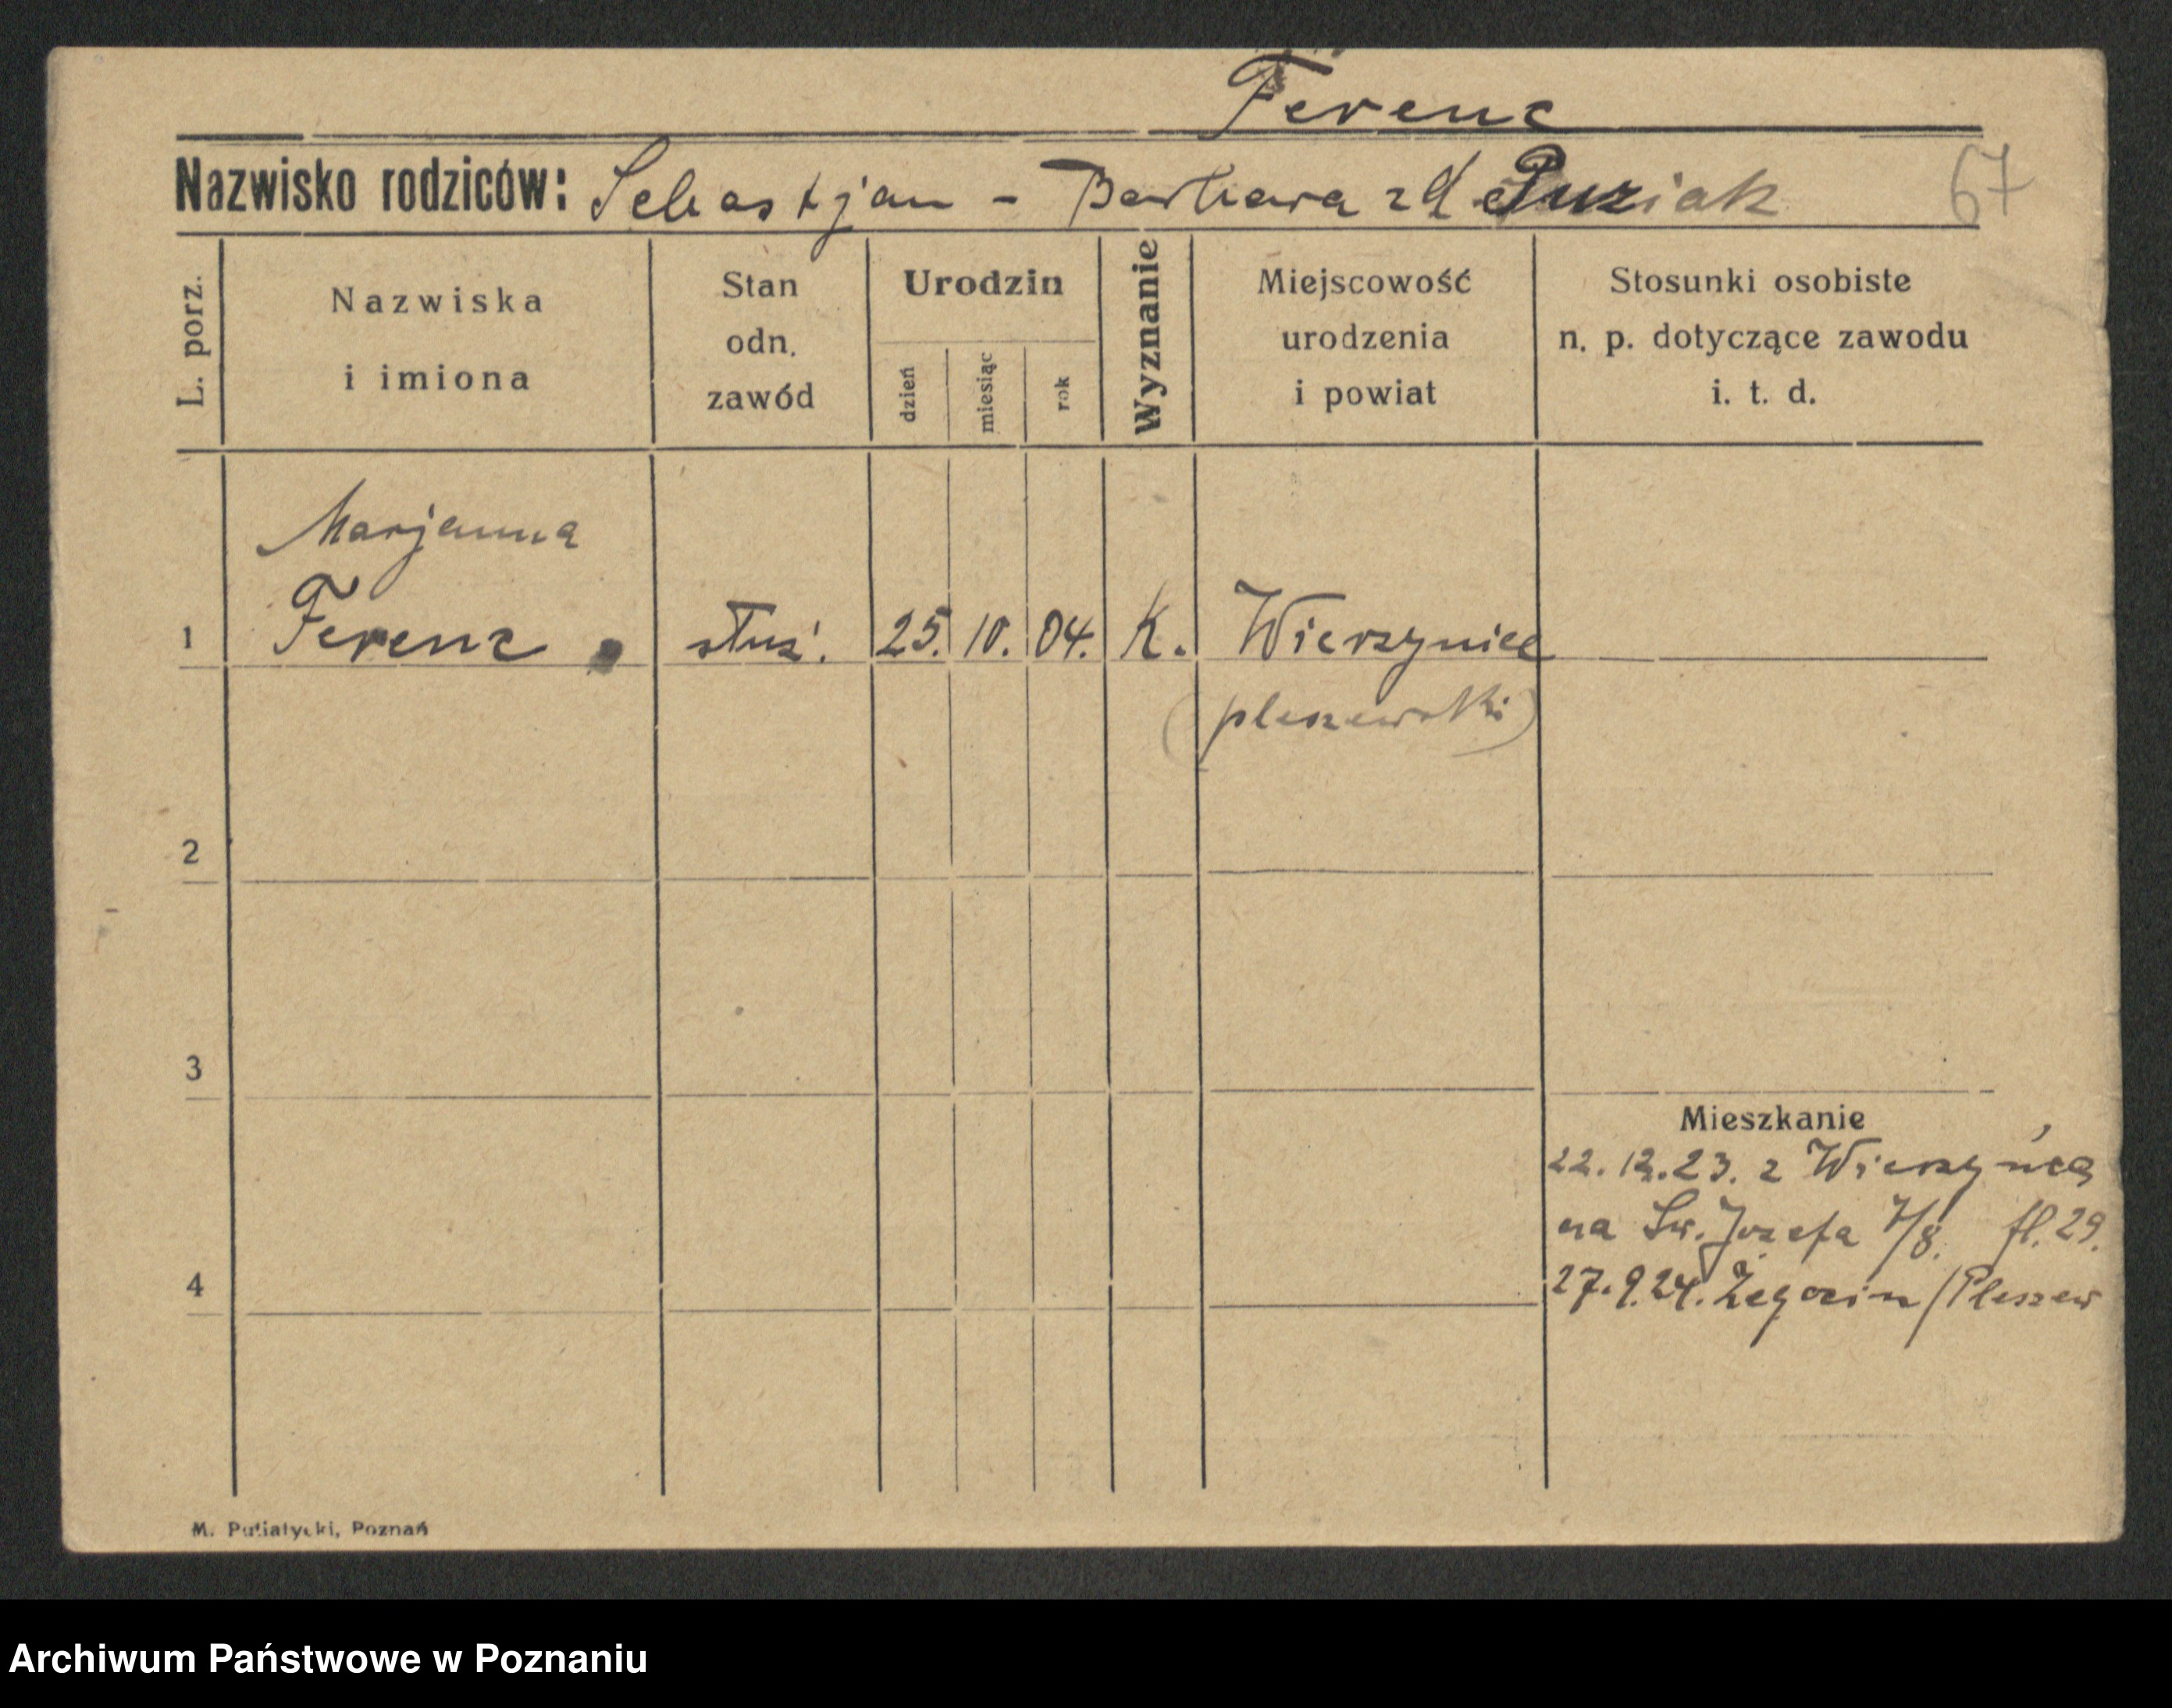 Ferenc
Nazwisko rodziców: Sebastjan - Barbara zd Puziak
67
L. porz.
Nazwiska
i imiona
Stan
odn.
zawód
Urodzin
dzień
miesiąc
rok
Wyznanie
Miejscowość
urodzenia
i powiat
Stosunki osobiste
n. p. dotyczące zawodu
i. t. d.
Marjanna
1 Ferenc służ. 25. 10. 04. K. Wierzyniec
(pleszewski)
2
3
Mieszkanie
22.12.23. z Wierzyńca
na Św. Józefa 7/8. fl. 29.
4 27.9.24. Żegocin/Pleszew
M. Putiatycki, Poznań
Archiwum Państwowe w Poznaniu